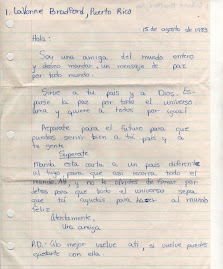 1. LaVonne Bradford, Puerto Rico
15 de agosto de 1983
Hola:
Soy una amiga del mundo entero
y deseo mandar un mensaje de paz
por todo mundo.
Sirve a tu país y a Dios. Es-
parse la paz por todo el universo
ama y quiere a todos por igual
Preparate para el futuro para que
puedas servir bien a tu país y a
tu gente
Suerte
Manda esta carta a un país diferente
al tuyo para que así recorra todo el
mundo. Ah, y no te olvides de firmar por
detras para que todo el universo sepa
que tú ayudas para hacer al mundo
feliz.
Atentamente,
Una amiga
P.D.: a lo mejor vuelve a ti, si vuelve puedes
quedarte con ella.